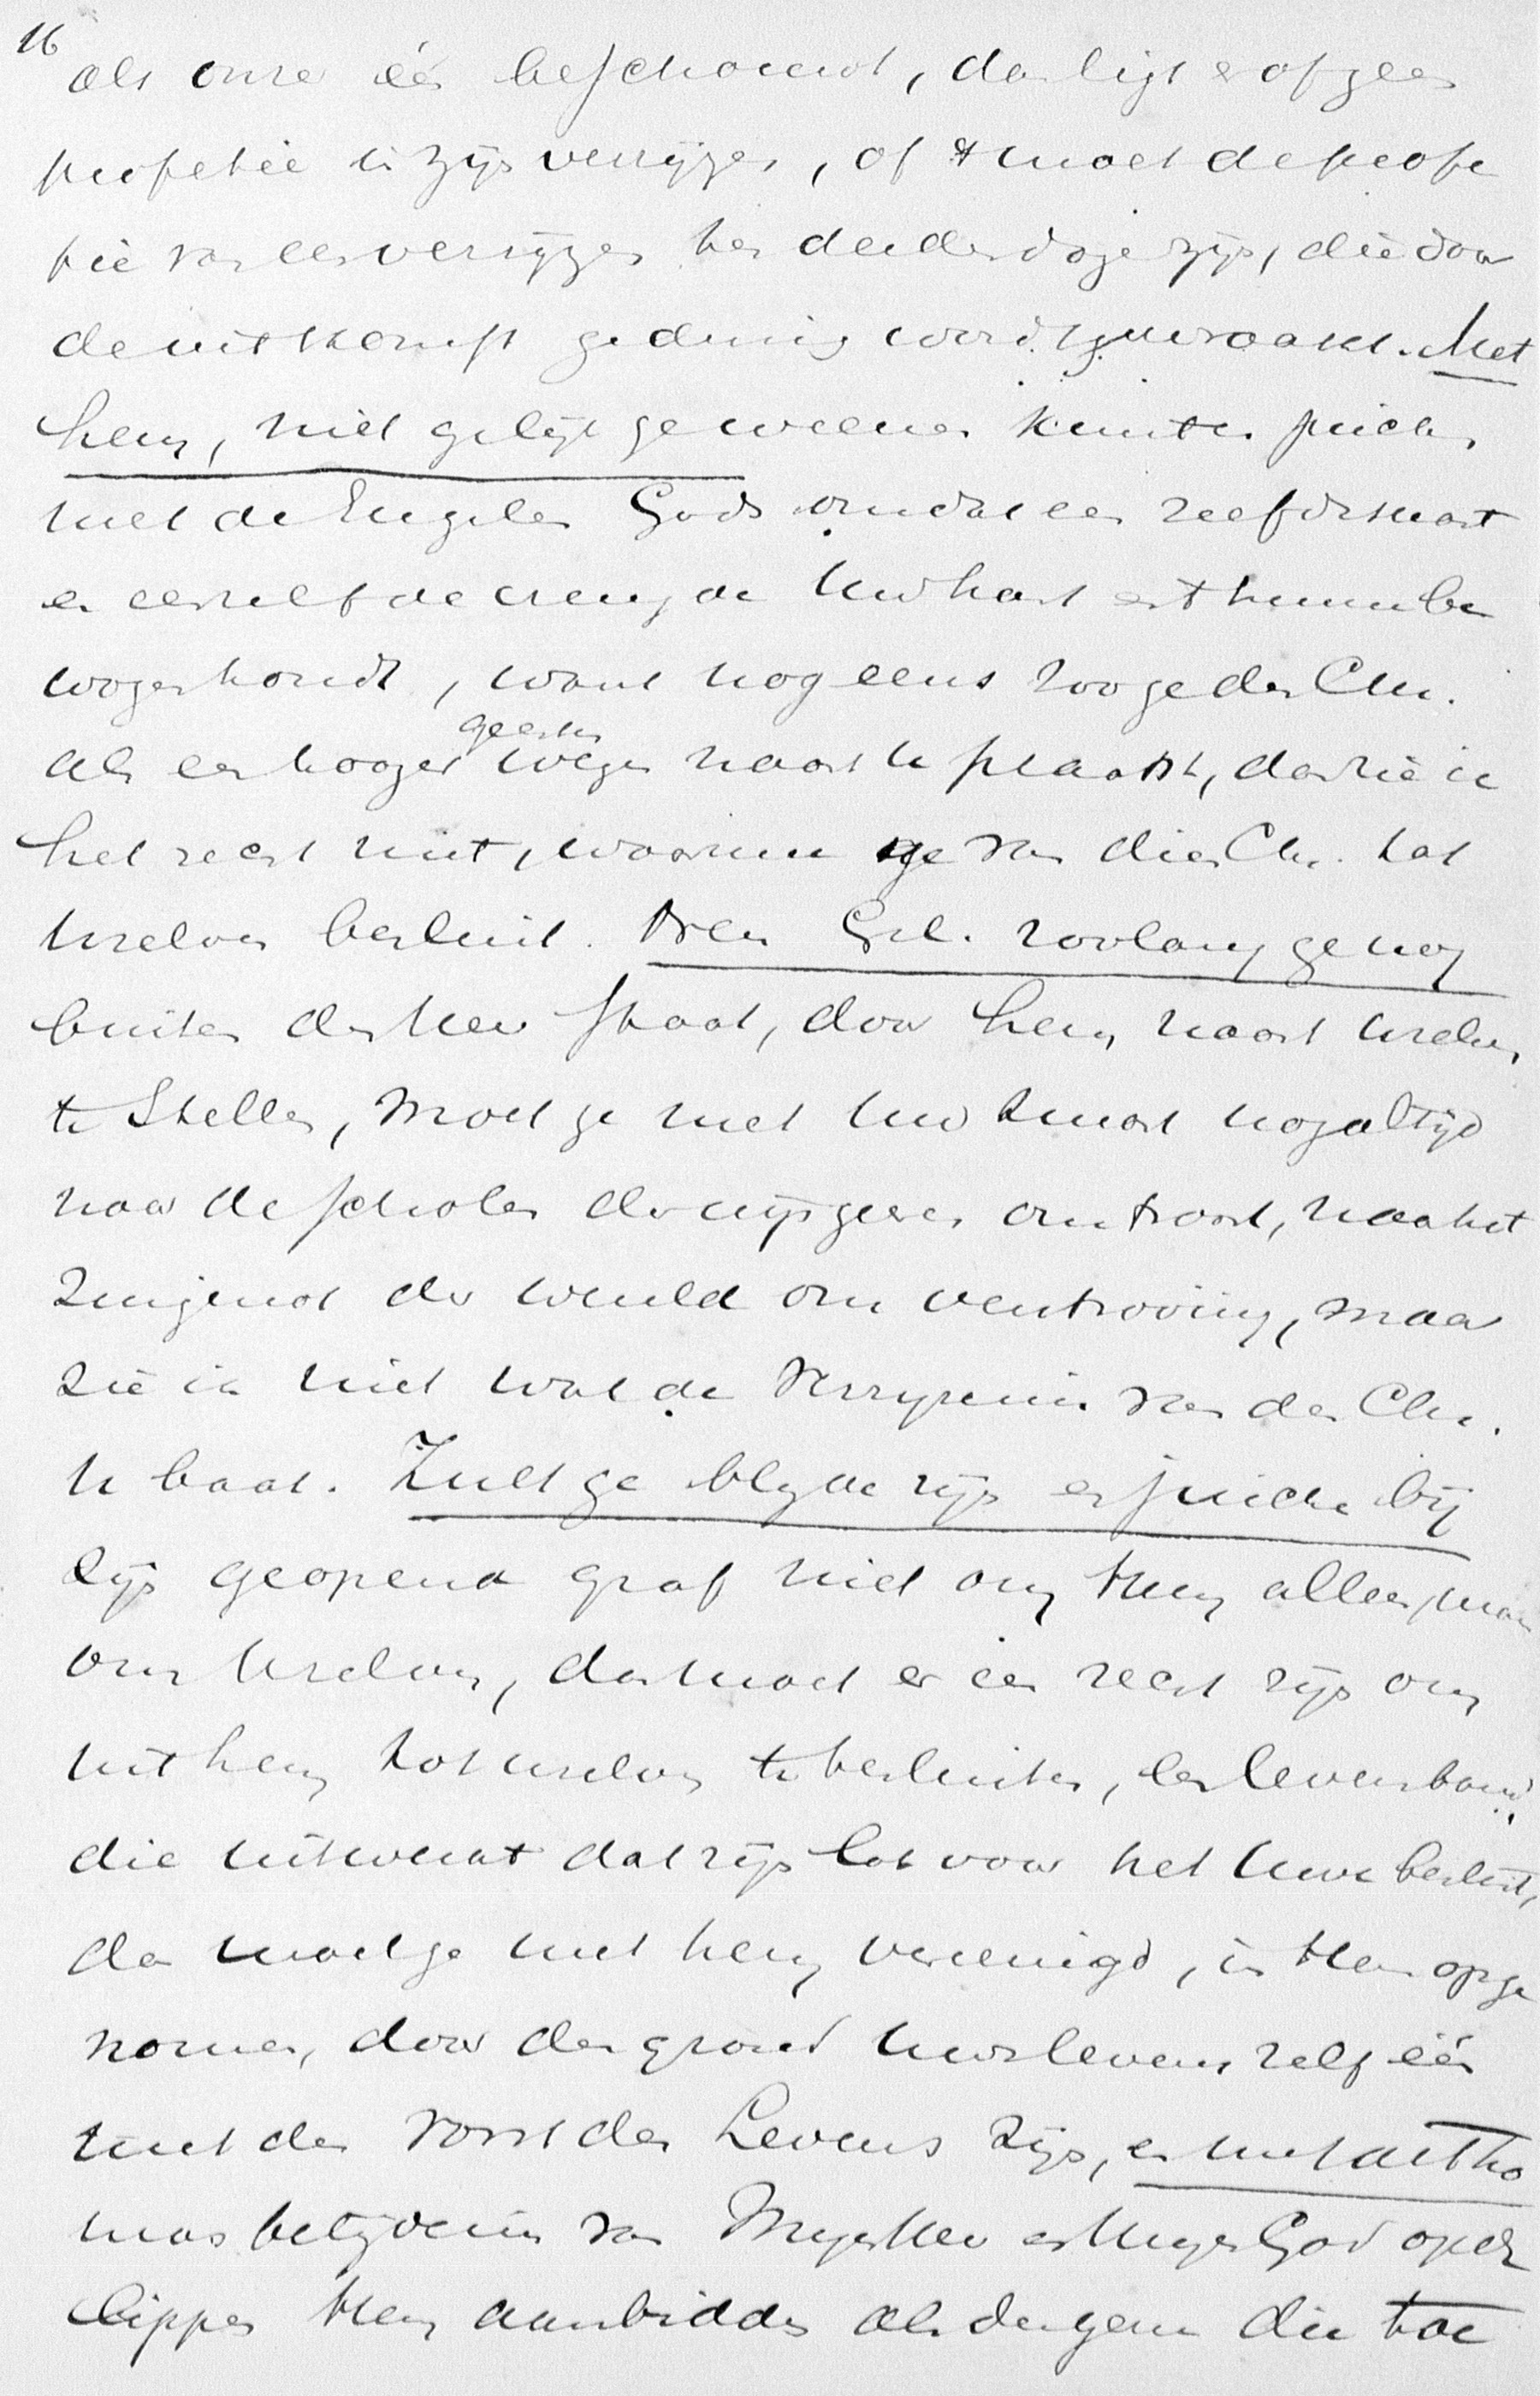 16
als onzer één beschouwd, dan ligt er of geen
profetie in zijn verrijzen, of 't moet de profe
tie van een verrijzen ten derden dage zijn, die door
de uitkomst geding wordt gewraakt. Met
hem, niet gelijk ge weenen kunt en juichen
met de Engelen Gods omdat een zelfde smart
en eenzelfde vreugde Uw hart en 't hunne be
wogen houdt, want nog eens zoo ge den Chr.
als een hooger geesten wezen naast U plaatst, dan zie ik
het recht niet, waarmee ge van dien Chr. tot
Uzelven besluit. Neen Gel. zoolang ge nog
buiten den Heer staat, door hem naast Uzelven
te stellen, moet ge met Uw smart nog altijd
naar de scholen der wijsgeeren om troost, naar het
gejuich der wereld om vertroosting, maar
zie ik niet wat de verrijzenis van den Chr.
U baat. Zult ge blyde zijn en juichen bij
zijn geopend graf niet om Hem alleen, maar
om Uzelven, dan moet er een recht zijn om
uit hem tot Uzelven te besluiten, een levensband
die uitwerkt dat zijn lot voor het Uwe beslist,
dan moet ge met hem vereenigd, in Hem opge
nomen, door den grond Uws levens zelf één
met den Vorst des Levens zijn, en met de Tho
mas belijdenis van Mijn Heer en Mijn God op de
lippen Hem aanbidden als dengene die toe